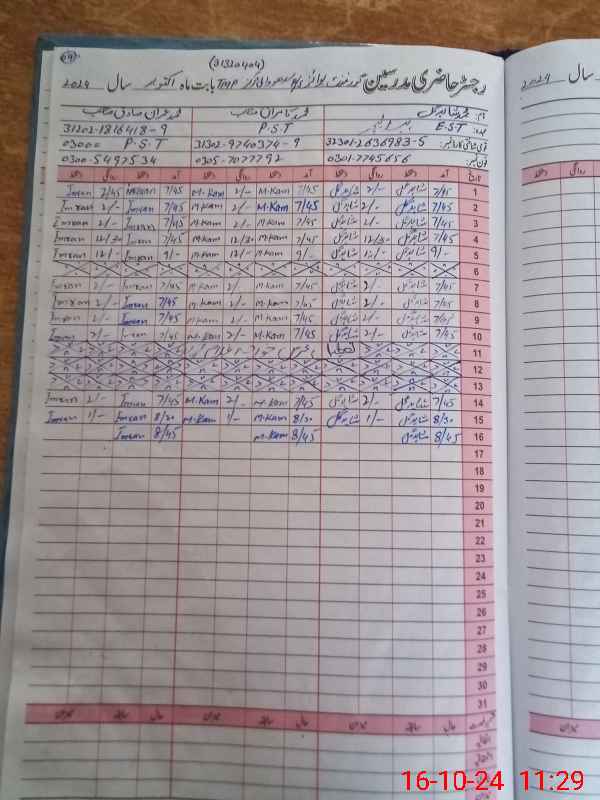 (31320404)
رجسٹر حاضری مدرسین گورنمنٹ بوائز بابت ماہ اکتوبر سال 2024
نام محمد شاہد گل محمد کامران مطلب محمد عمران صادق مطلب
عہدہ E.S.T P.S.T 31202-1816418-9
32301-2636983-5 31302-9740374-9 P.S.T 03000
فون نمبر 0301-7745656 0305-7077792 0300-5497534
تاریخ آمد دستخط روانگی دستخط آمد دستخط روانگی دستخط آمد دستخط روانگی دستخط
1 7/45 شاہد گل 2/- شاہد گل 7/45 M.Kam 2/- M.Kam 7/45 Imran 2/45 Imran
2 7/45 شاہد گل 2/- شاہد گل 7/45 M.Kam 2/- M.Kam 7/45 Imran 2/- Imran
3 7/45 شاہد گل 2/- شاہد گل 7/45 M.Kam 2/- M.Kam 7/45 Imran 2/- Imran
4 7/45 شاہد گل 12/30 شاہد گل 7/45 M.Kam 12/30 M.Kam 7/45 Imran 12/30 Imran
5 9/- شاہد گل 12/- شاہد گل 9/- M.Kam 12/- M.Kam 9/- Imran 12/- Imran
6
7 7/45 شاہد گل 2/- شاہد گل 7/45 M.Kam 2/- M.Kam 7/45 Imran 2/- Imran
8 7/45 شاہد گل 2/- شاہد گل 7/45 M.Kam 2/- M.Kam 7/45 Imran 2/- Imran
9 7/45 شاہد گل 2/- شاہد گل 7/45 M.Kam 2/- M.Kam 7/45 Imran 2/- Imran
10 7/45 شاہد گل 2/- شاہد گل 7/45 M.Kam 2/- M.Kam 7/45 Imran 2/- Imran
11 تعطیل
12
13
14 7/45 شاہد گل 2/- شاہد گل 7/45 M.Kam 2/- M.Kam 7/45 Imran 2/- Imran
15 8/30 شاہد گل 1/- شاہد گل 8/30 M.Kam 1/- M.Kam 8/30 Imran 1/- Imran
16 8/45 شاہد گل 8/45 M.Kam 8/45 Imran
17
18
19
20
21
22
23
24
25
26
27
28
29
30
31
میزان سابقہ حال میزان سابقہ حال میزان سابقہ حال
سال 2024
16-10-24 11:29